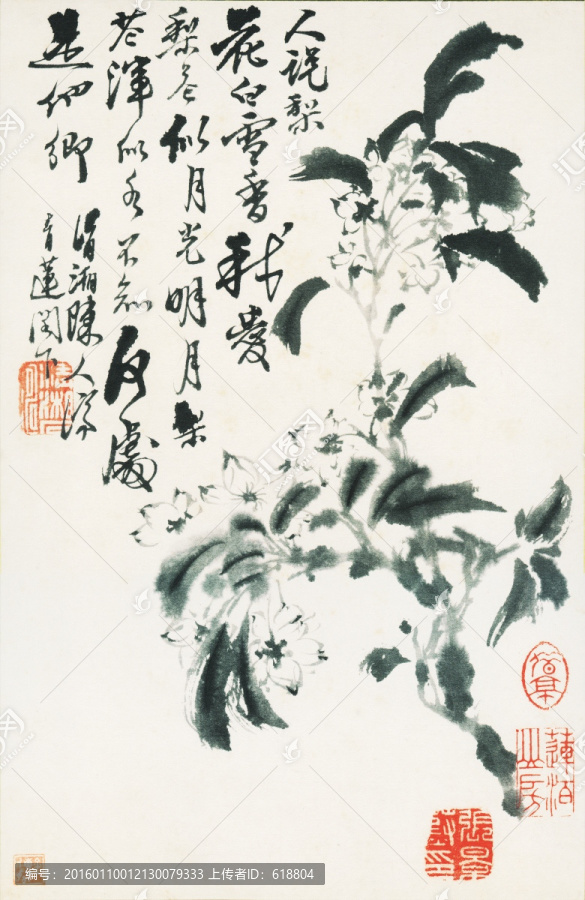 人説梨
花白雪香我愛
梨花似月光明月梨
花渾似水不知何處
是他鄉
清湘陳人濟
青蓮閣下
编号：20160110012130079333 上传者ID：618804